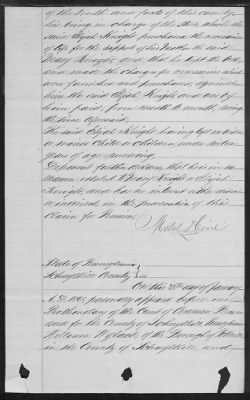 of the truth and facts of this case by
his being in charge of the Store, where the
said Elijah Knight purchased the necessaries
of life for the support of his Mother the said
Mary Knight, and that he kept the books
and made the charges for necessaries which
were furnished and purchased, against
him the said Elijah Knight and were by
him paid, from month to month, during
the time aforesaid.
The said Elijah Knight having left no widow
or minor Child or Children, under sixteen
years of age surviving.
Deponent further declares that he is in no
manner related to Mary Knight or Elijah
Knight, and has no interest either direct
or indirect, in the prosecution of this
Claim for Pension
State of Pennsylvania
Schuylkill County ss
On this 28th day of January
A.D. personally appeared before me
Prothonotary of the Court of Common Pleas
and for the County of Schuylkill, Pennsylvania
William of the Borough of
in the County of Schuylkill and